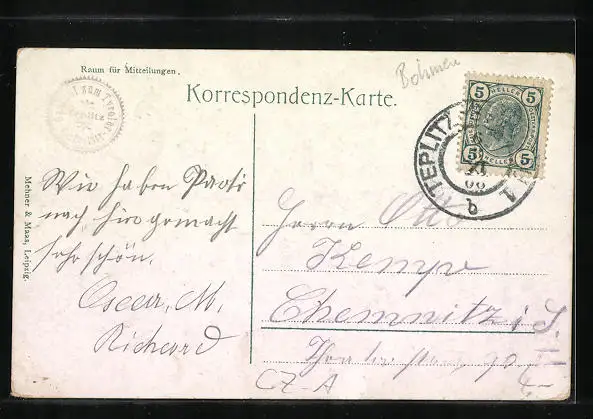 Raum für Mitteilungen.
Böhmen
Korrespondenz-Karte.
5 HELLER 5
5 HELLER 5
TEPLITZ
b
Teplitz
Mehner & Maas, Leipzig.
Wir haben
nach hier gemacht
sehr schön.
Oscar, M.
Richard
Herrn Otto
Kempe
Chemnitz i. S.
CZ-A
4-